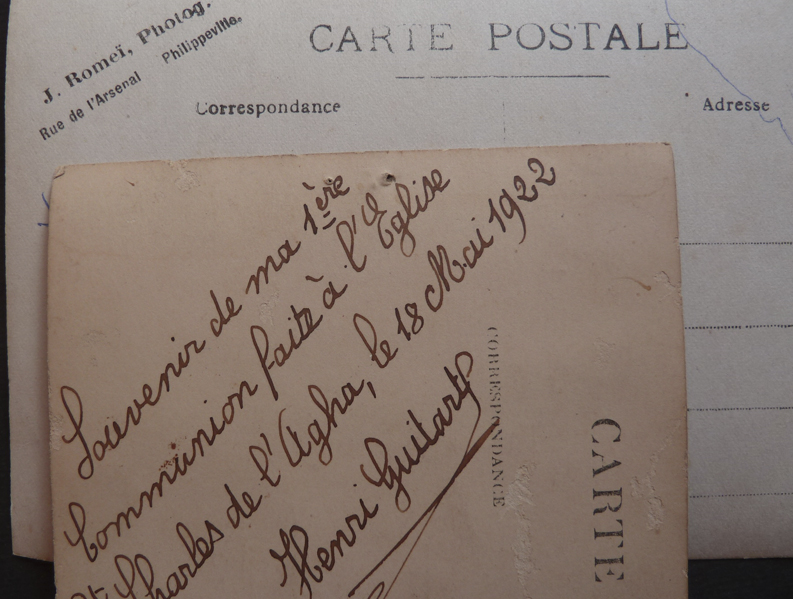 J. Romeï, Photog.
Rue de l'Arsenal Philippeville.
CARTE POSTALE
Correspondance
Adresse
Souvenir de ma 1ère
Communion faite à l'Eglise
St Charles de l'Agha, le 18 Mai 1922
Henri Guitart
CORRESPONDANCE
CARTE